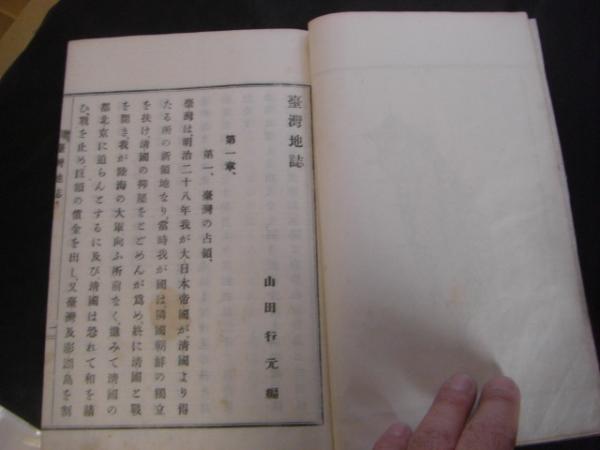 臺灣地誌
山田行元編
第一章、
第一、臺灣の占領、
臺灣は、明治二十八年我が大日本帝國が、清國より得
たる所の新領地なり、當時我が國は、隣國朝鮮の獨立
を扶け、清國の抑壓をとどめんが爲め、終に清國と戰
を開き、我が陸海の大軍向ふ所前なく、進みて清國の
都北京に迫らんとするに及び清國は恐れて和を請
ひ、戰を止め、巨額の償金を出し、又臺灣及澎湖島を割
臺灣地誌
一